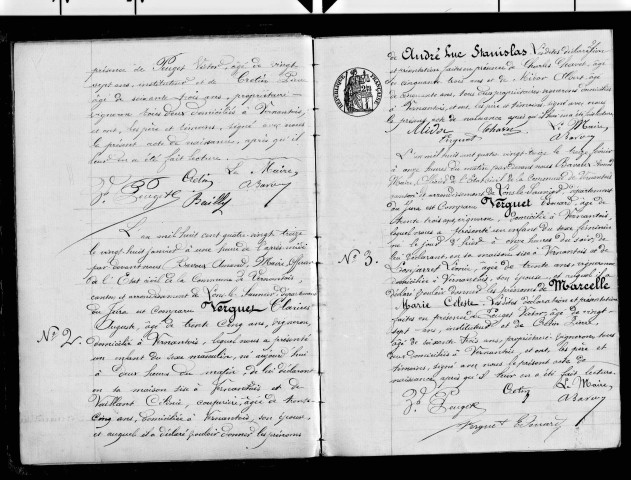 présence de Pouget Victor, âgé de vingt
sept ans, instituteur et de Cretin Pierre
âgé de soixante trois ans, propriétaire
vigneron tous deux domiciliés à Vernantois,
et ont, les père et témoins, signé avec nous
le présent acte de naissance, après qu'il
leur en a été fait lecture.
Le Maire,
Cretin
Vr. Pouget
Bailly
N° 2.
L'an mil huit cent quatre vingt treize
le vingt huit janvier à une heure de l'après-midi
par devant nous Maire, Officier
de l'Etat civil de la Commune de Vernantois,
canton et arrondissement de Lons-le-Saunier, département
du Jura est comparu Verguet
Auguste, âgé de trente cinq ans, vigneron,
domicilié à Vernantois, lequel nous a présenté
un enfant du sexe masculin, né aujourd'hui
à heures du matin, de lui déclarant
en sa maison sise à Vernantois et de
Vaillant couturière, âgée de trente
cinq ans, domiciliée à Vernantois, son épouse,
et auquel il a déclaré vouloir donner les prénoms
de André Luc Stanislas. Lesdites déclaration
et présentation faites en présence de Charles
de cinquante trois ans et de Midor
ans, tous deux propriétaires vignerons domiciliés
à Vernantois, et ont, les père et témoins, signé avec nous
le présent acte de naissance après qu'il leur en a été fait lecture
Midor
Le Maire,
Verguet
RÉPUBLIQUE FRANÇAISE
N° 3.
L'an mil huit cent quatre vingt treize le février
à onze heures du matin par devant nous
Maire, Officier de l'Etat civil de la Commune de Vernantois
canton et arrondissement de Lons-le-Saunier, département
du Jura est comparu Verguet Edouard, âgé de
trente trois ans, vigneron, domicilié à Vernantois,
lequel nous a présenté un enfant du sexe féminin
né le jour d'hier à onze heures du soir de
lui déclarant, en sa maison sise à Vernantois et de
âgée de trente ans, vigneronne
domiciliée à Vernantois, son épouse, et auquel il a
déclaré vouloir donner les prénoms de Marcelle
Marie Celeste. Lesdites déclaration et présentation
faites en présence de Pouget Victor, âgé de vingt-
sept ans, instituteur et de Cretin Pierre,
âgé de soixante trois ans, propriétaire vigneron, tous
deux domiciliés à Vernantois, et ont, les père et
témoins, signé avec nous le présent acte de
naissance, après qu'il leur en a été fait lecture.
Cretin
Le Maire,
Vr. Pouget
Verguet Edouard